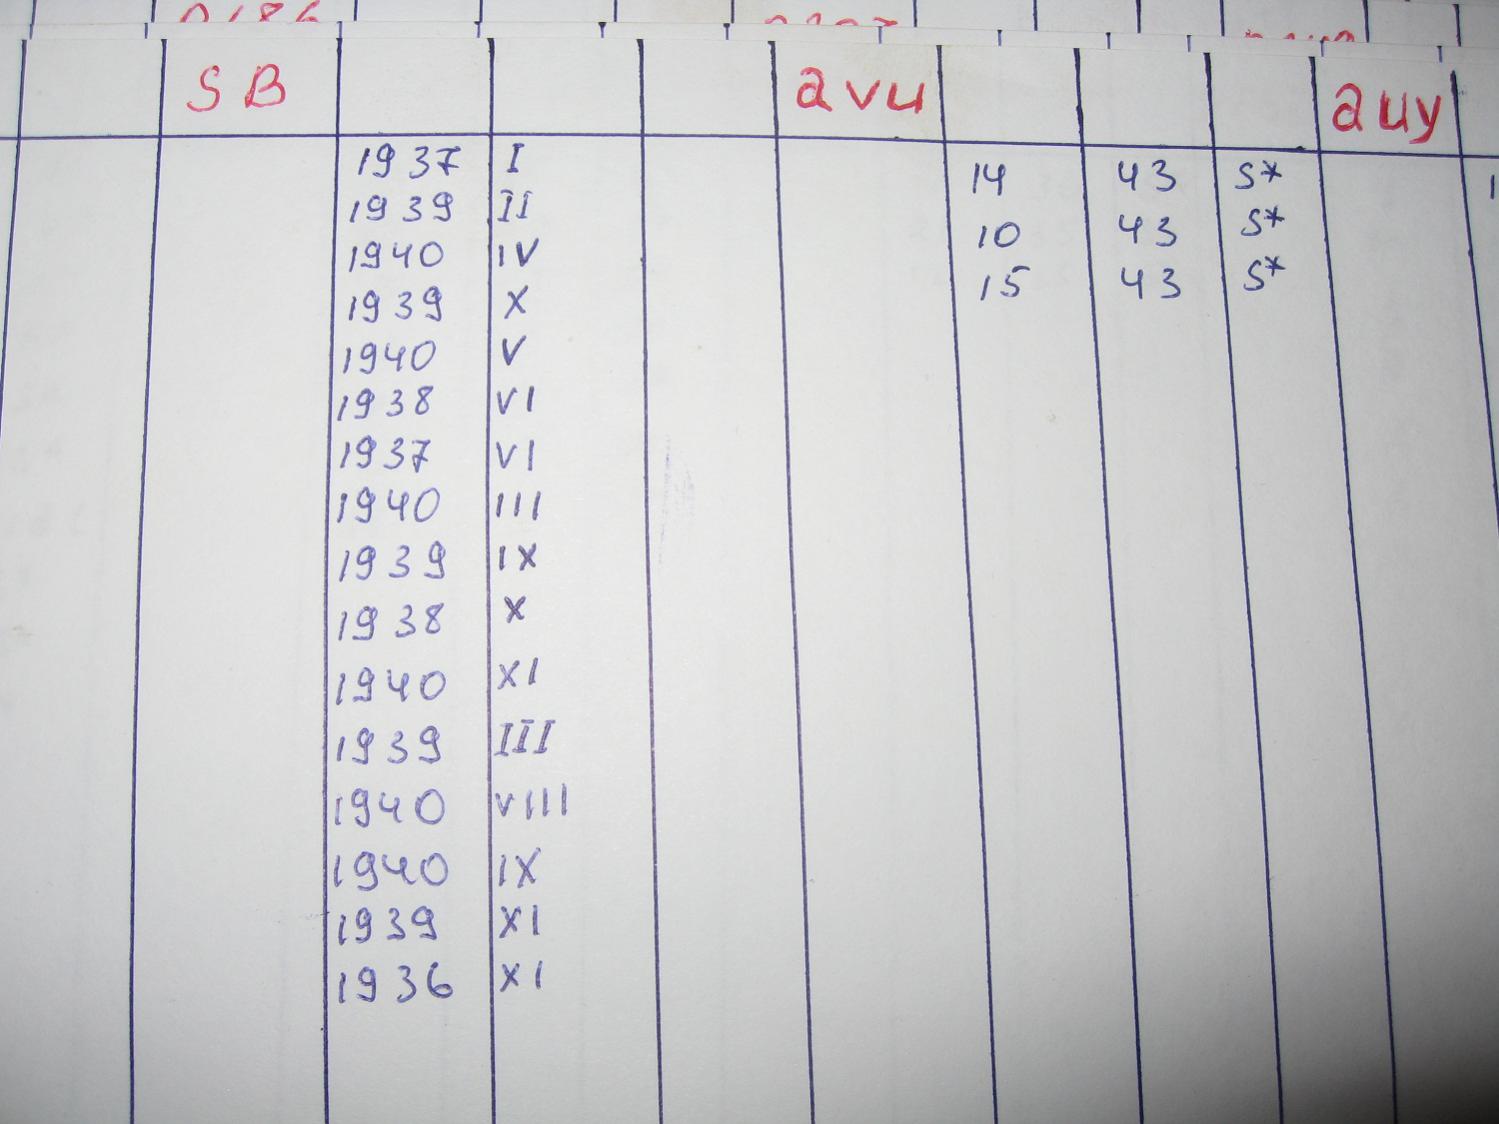 SB avu auy
1937 I 14 43 S*
1939 II 10 43 S*
1940 IV 15 43 S*
1939 X
1940 V
1938 VI
1937 VI
1940 III
1939 IX
1938 X
1940 XI
1939 III
1940 VIII
1940 IX
1939 XI
1936 XI